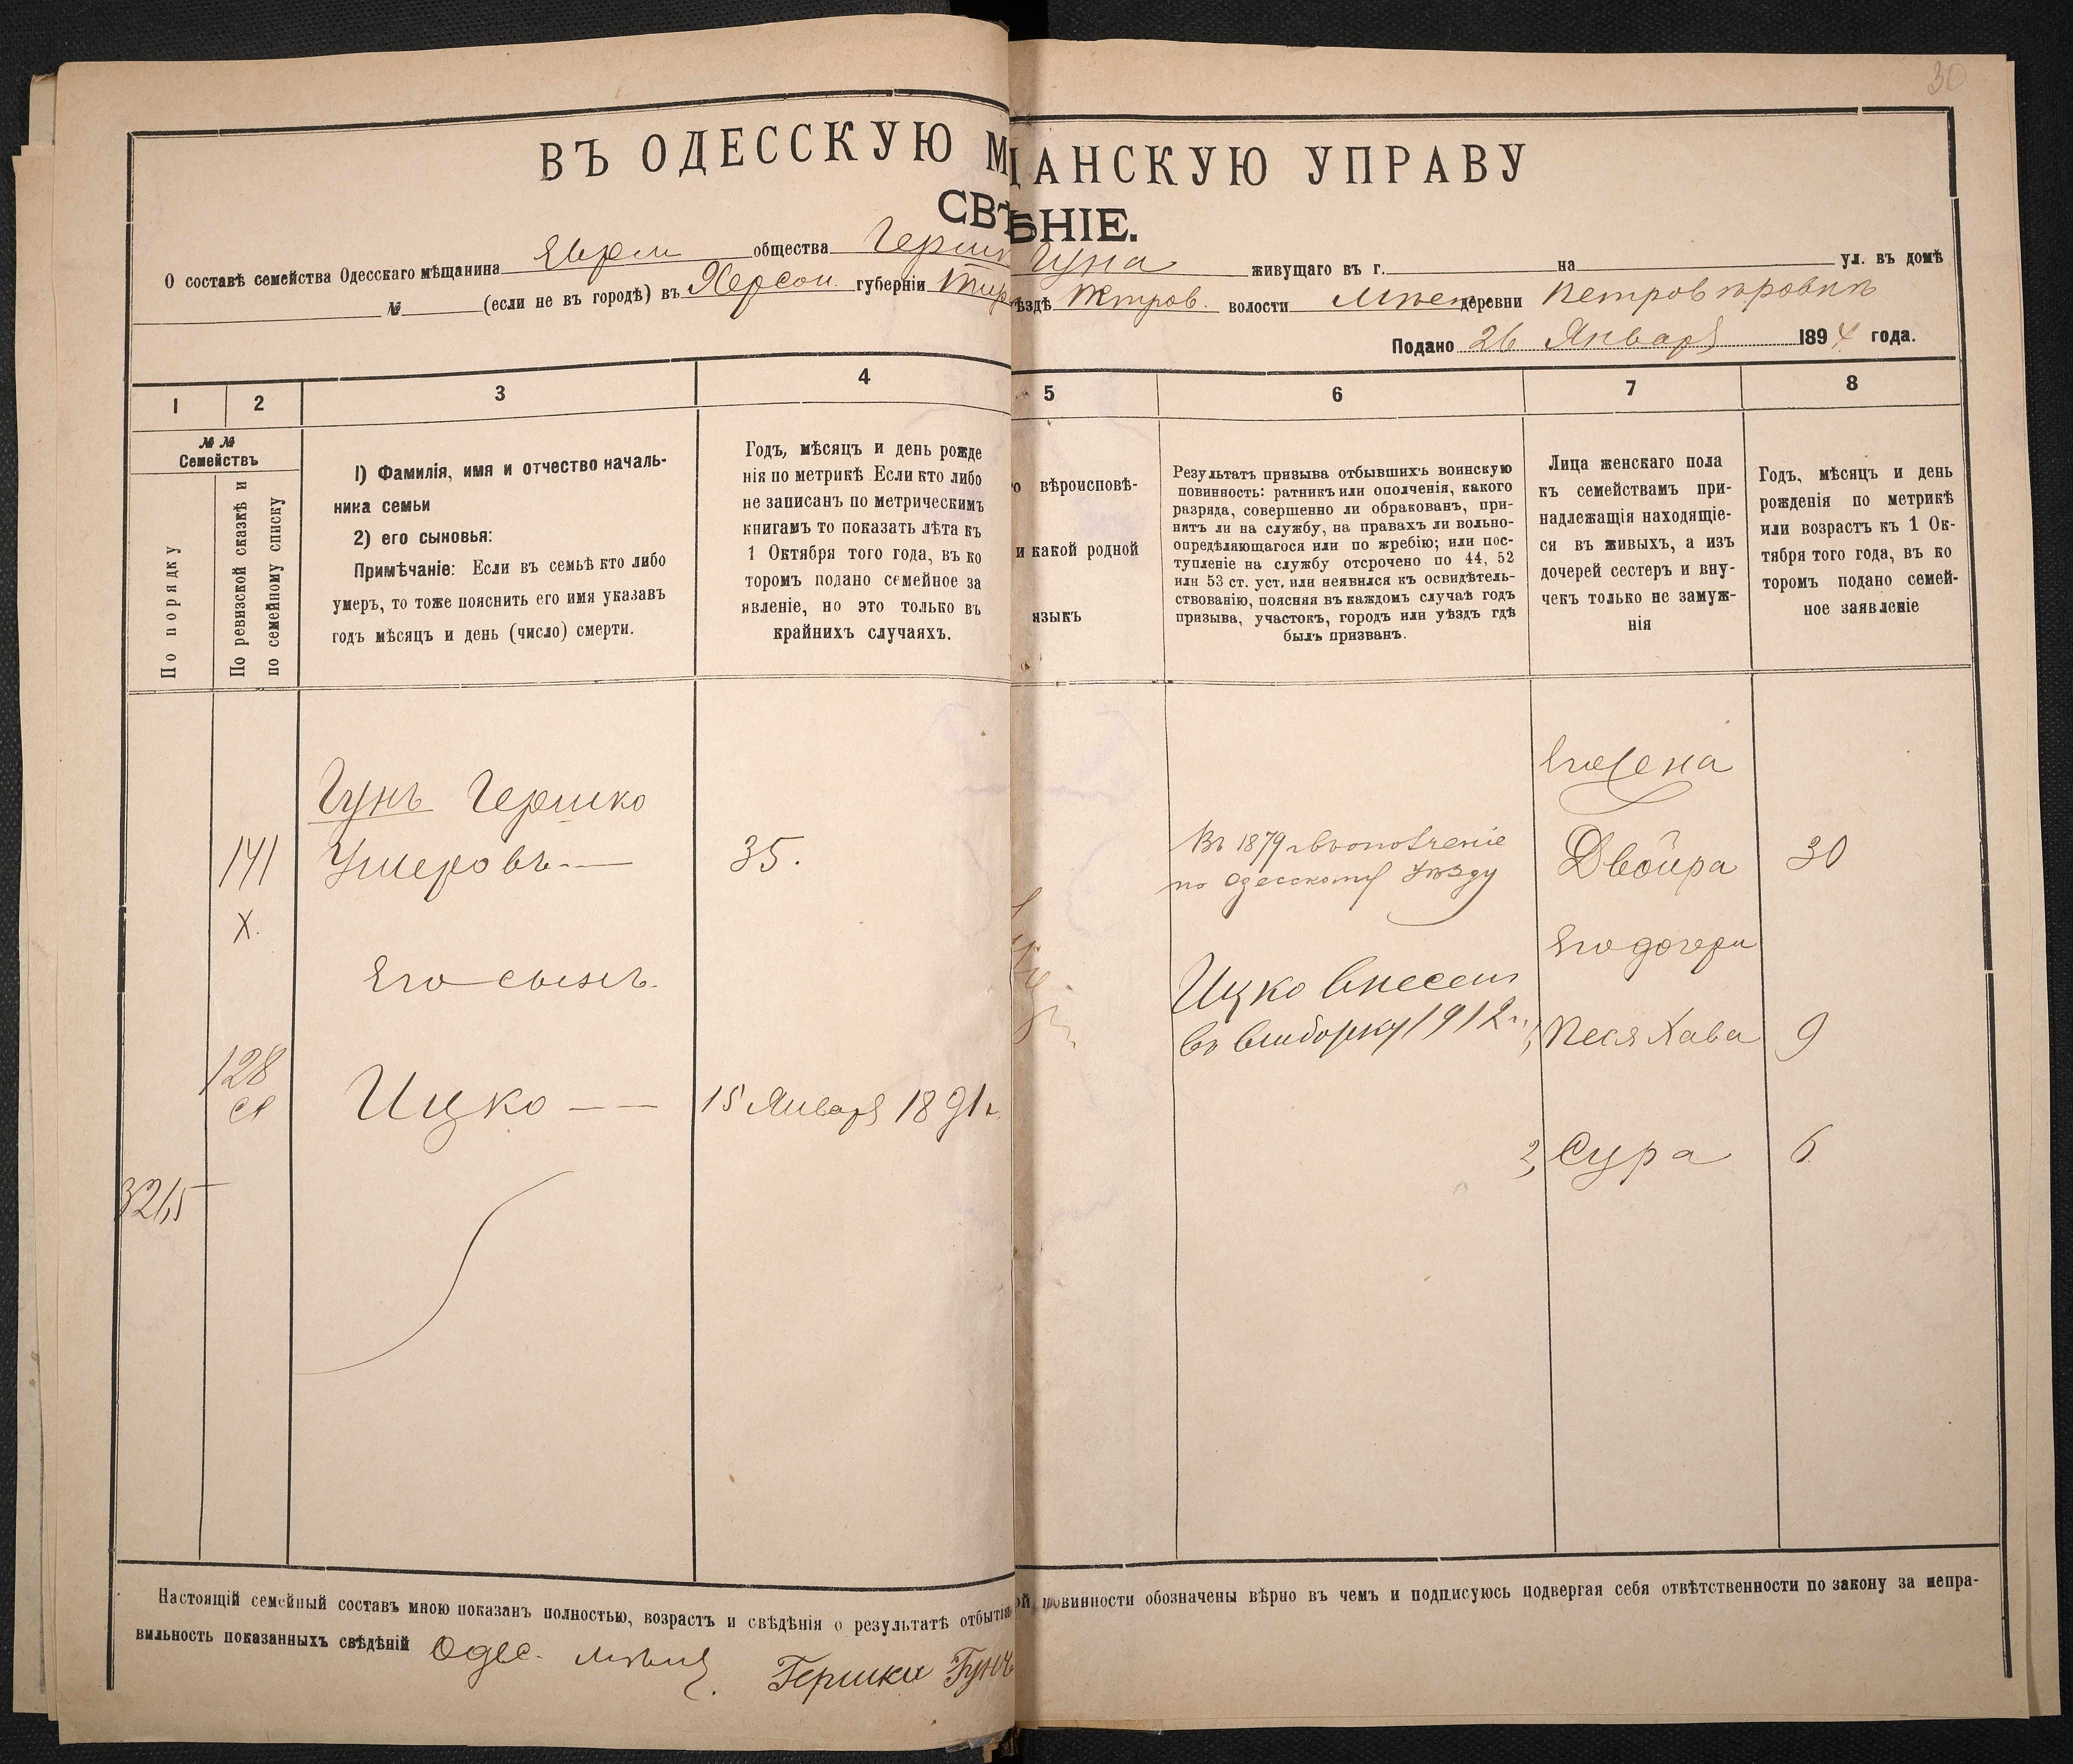 30
ВЪ ОДЕССКУЮ М ЩАНСКУЮ УПРАВУ
СВѢ ѢНІЕ.
О составѣ семейства Одесскаго мѣщанина Еврей общества Гершк Гуна живущаго въ г. на ул. въ домѣ
№ (если не въ городѣ) въ Херсон. губерніи Тир ѣздѣ Петров. волости деревни
Подано 26 Января 1894 года.
1 2 3 4 5 6 7 8
№ №
Семействъ
По порядку
По ревизской сказкѣ и
по семейному списку
1) Фамилія, имя и отчество началь-
ника семьи
2) его сыновья:
Примѣчаніе: Если въ семьѣ кто либо
умеръ, то тоже пояснить его имя указавъ
годъ мѣсяцъ и день (число) смерти.
Годъ, мѣсяцъ и день рожде
нія по метрикѣ Если кто либо
не записанъ по метрическимъ
книгамъ то показать лѣта къ
1 Октября того года, въ ко
торомъ подано семейное за
явленіе, но это только въ
крайнихъ случаяхъ.
о вѣроисповѣ-
и какой родной
языкъ
Результатъ призыва отбывшихъ воинскую
повинность: ратникъ или ополченія, какого
разряда, совершенно ли обракованъ, при-
нятъ ли на службу, на правахъ ли вольно-
опредѣляющагося или по жребію; или пос-
тупленіе на службу отсрочено по 44, 52
или 53 ст. уст. или неявился къ освидѣтель-
ствованію, поясняя въ каждомъ случаѣ годъ
призыва, участокъ, городъ или уѣздъ гдѣ
былъ призванъ.
Лица женскаго пола
къ семействамъ при-
надлежащія находящіе-
ся въ живыхъ, а изъ
дочерей сестеръ и вну-
чекъ только не замуж-
нія
Годъ, мѣсяцъ и день
рожденія по метрикѣ
или возрастъ къ 1 Ок-
тября того года, въ ко
торомъ подано семей-
ное заявленіе
Его жена
Гунъ Гершко
141 Ушеровъ 35. Въ 1879 г въ ополченіе Двойра 30
по Одесскому Уѣзду
X.
Его дочери
Его сынъ.
Ицко внесен
в выборку 1912 г. 1, Песя Хава 9
128
Ицко 15 Января 1891 г.
2, Сура 6
3215
Настоящій семейный составъ мною показанъ полностью, возрастъ и свѣдѣнія о результатѣ отбытія ой повинности обозначены вѣрно въ чемъ и подписуюсь подвергая себя отвѣтственности по закону за непра-
вильность показанныхъ свѣдѣній Одес. мѣщ. Гершки Гунъ